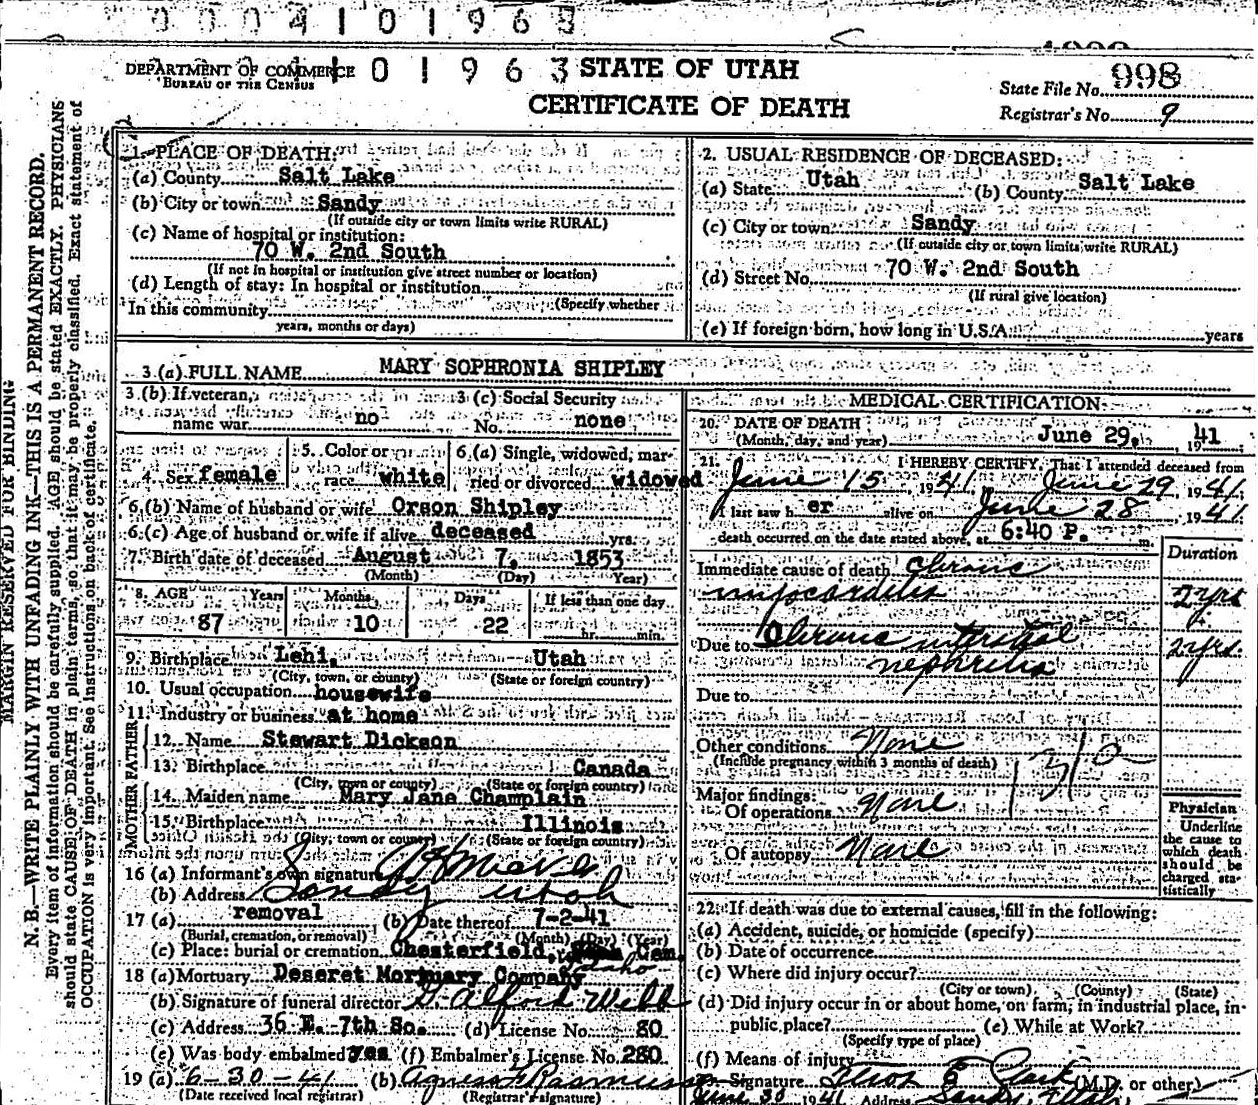 0004101963
DEPARTMENT OF COMMERCE
BUREAU OF THE CENSUS
101963
STATE OF UTAH
CERTIFICATE OF DEATH
State File No. 998
Registrar's No. 9
MARGIN RESERVED FOR BINDING
N. B.—WRITE PLAINLY WITH UNFADING INK—THIS IS A PERMANENT RECORD.
Every item of information should be carefully supplied. AGE should be stated EXACTLY. PHYSICIANS
should state CAUSE OF DEATH in plain terms, so that it may be properly classified. Exact statement of
OCCUPATION is very important. See instructions on back of certificate.
1. PLACE OF DEATH:
(a) County Salt Lake
(b) City or town Sandy
(If outside city or town limits write RURAL)
(c) Name of hospital or institution:
70 W. 2nd South
(If not in hospital or institution give street number or location)
(d) Length of stay: In hospital or institution
(Specify whether
In this community
years, months or days)
2. USUAL RESIDENCE OF DECEASED:
(a) State Utah (b) County Salt Lake
(c) City or town Sandy
(If outside city or town limits write RURAL)
(d) Street No. 70 W. 2nd South
(If rural give location)
(e) If foreign born, how long in U.S.A. years
3. (a) FULL NAME MARY SOPHRONIA SHIPLEY
3. (b) If veteran,
name war no
3 (c) Social Security
No. none
4. Sex female
5. Color or
race white
6. (a) Single, widowed, mar-
ried or divorced widowed
6. (b) Name of husband or wife Orson Shipley
6. (c) Age of husband or wife if alive deceased yrs.
7. Birth date of deceased August 7, 1853
(Month) (Day) Year)
8. AGE Years Months Days If less than one day
87 10 22 hr. min.
9. Birthplace Lehi, Utah
(City, town, or county) (State or foreign country)
10. Usual occupation housewife
11. Industry or business at home
FATHER
12. Name Stewart Dickson
13. Birthplace Canada
(City, town or county) (State or foreign country)
MOTHER
14. Maiden name Mary Jane Champlain
15. Birthplace Illinois
(City; town or county) (State or foreign country)
16 (a) Informant's own signature
(b) Address Sandy Utah
17 (a) removal (b) Date thereof 7-2-41
(Burial, cremation, or removal) (Month) (Day) (Year)
(c) Place: burial or cremation Chesterfield, Cem.
Idaho
18 (a) Mortuary Deseret Mortuary Company
(b) Signature of funeral director D. Alford Webb
(c) Address 36 E. 7th So. (d) License No. 80
(e) Was body embalmed yes (f) Embalmer's License No. 280
19 (a) 6-30-41 (b) Agnes Rasmussen
(Date received local registrar) (Registrar's signature)
MEDICAL CERTIFICATION
20. DATE OF DEATH
(Month, day, and year) June 29, 1941
21. I HEREBY CERTIFY, That I attended deceased from
June 15, 1941 June 29 1941
I last saw her alive on June 28 1941
death occurred on the date stated above, at 6:40 P. m.
Duration
Immediate cause of death chronic
myocarditis 2 yrs
Due to Chronic intersitial 2 yrs.
nephritis
Due to
Other conditions None
(Include pregnancy within 3 months of death)
Major findings:
Of operations None
Of autopsy None
Physician
Underline
the cause to
which death
should be
charged sta-
tistically
22. If death was due to external causes, fill in the following:
(a) Accident, suicide, or homicide (specify)
(b) Date of occurrence
(c) Where did injury occur?
(City or town) (County) (State)
(d) Did injury occur in or about home, on farm, in industrial place, in
public place? (e) While at Work?
(Specify type of place)
(f) Means of injury
Signature (M.D. or other)
June 30 1941 Address Sandy, Utah